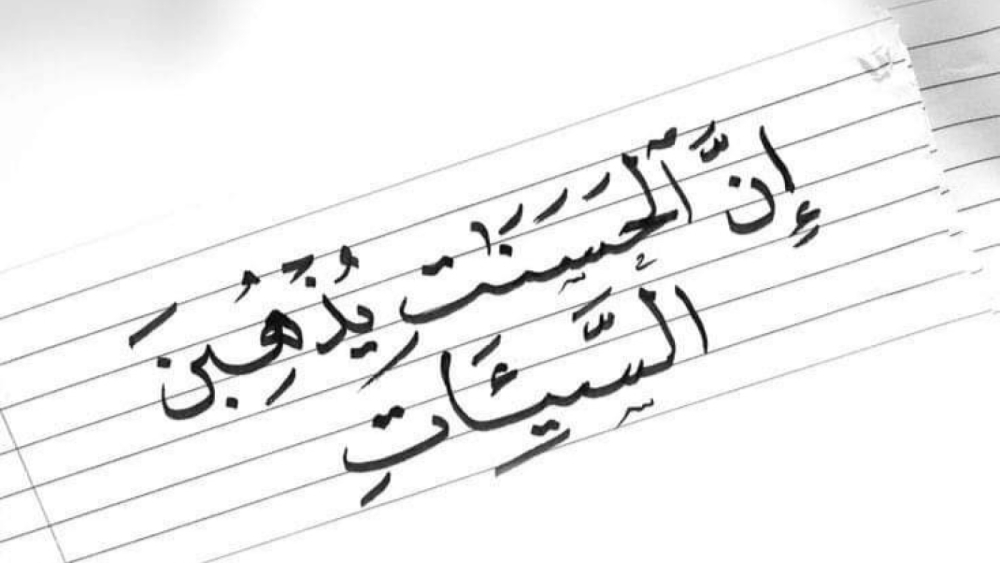 إِنَّ ٱلْحَسَنَٰتِ يُذْهِبْنَ
السَّيِّـَٔاتِ